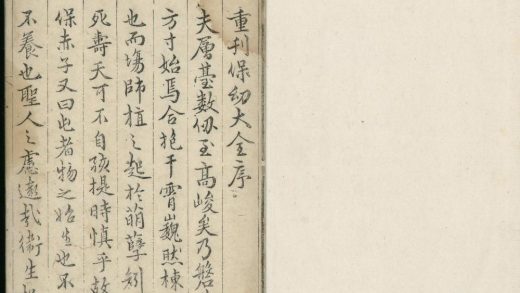 重刊保幼大全序
夫層臺數仭至高峻矣乃磐
方寸始焉合抱干霄巍然棟
也而塲師植之起於萌孽矧
死壽夭可不自孩提時慎乎故
保赤子又曰屯者物之始生也不
不養也聖人之慮遠哉衞生